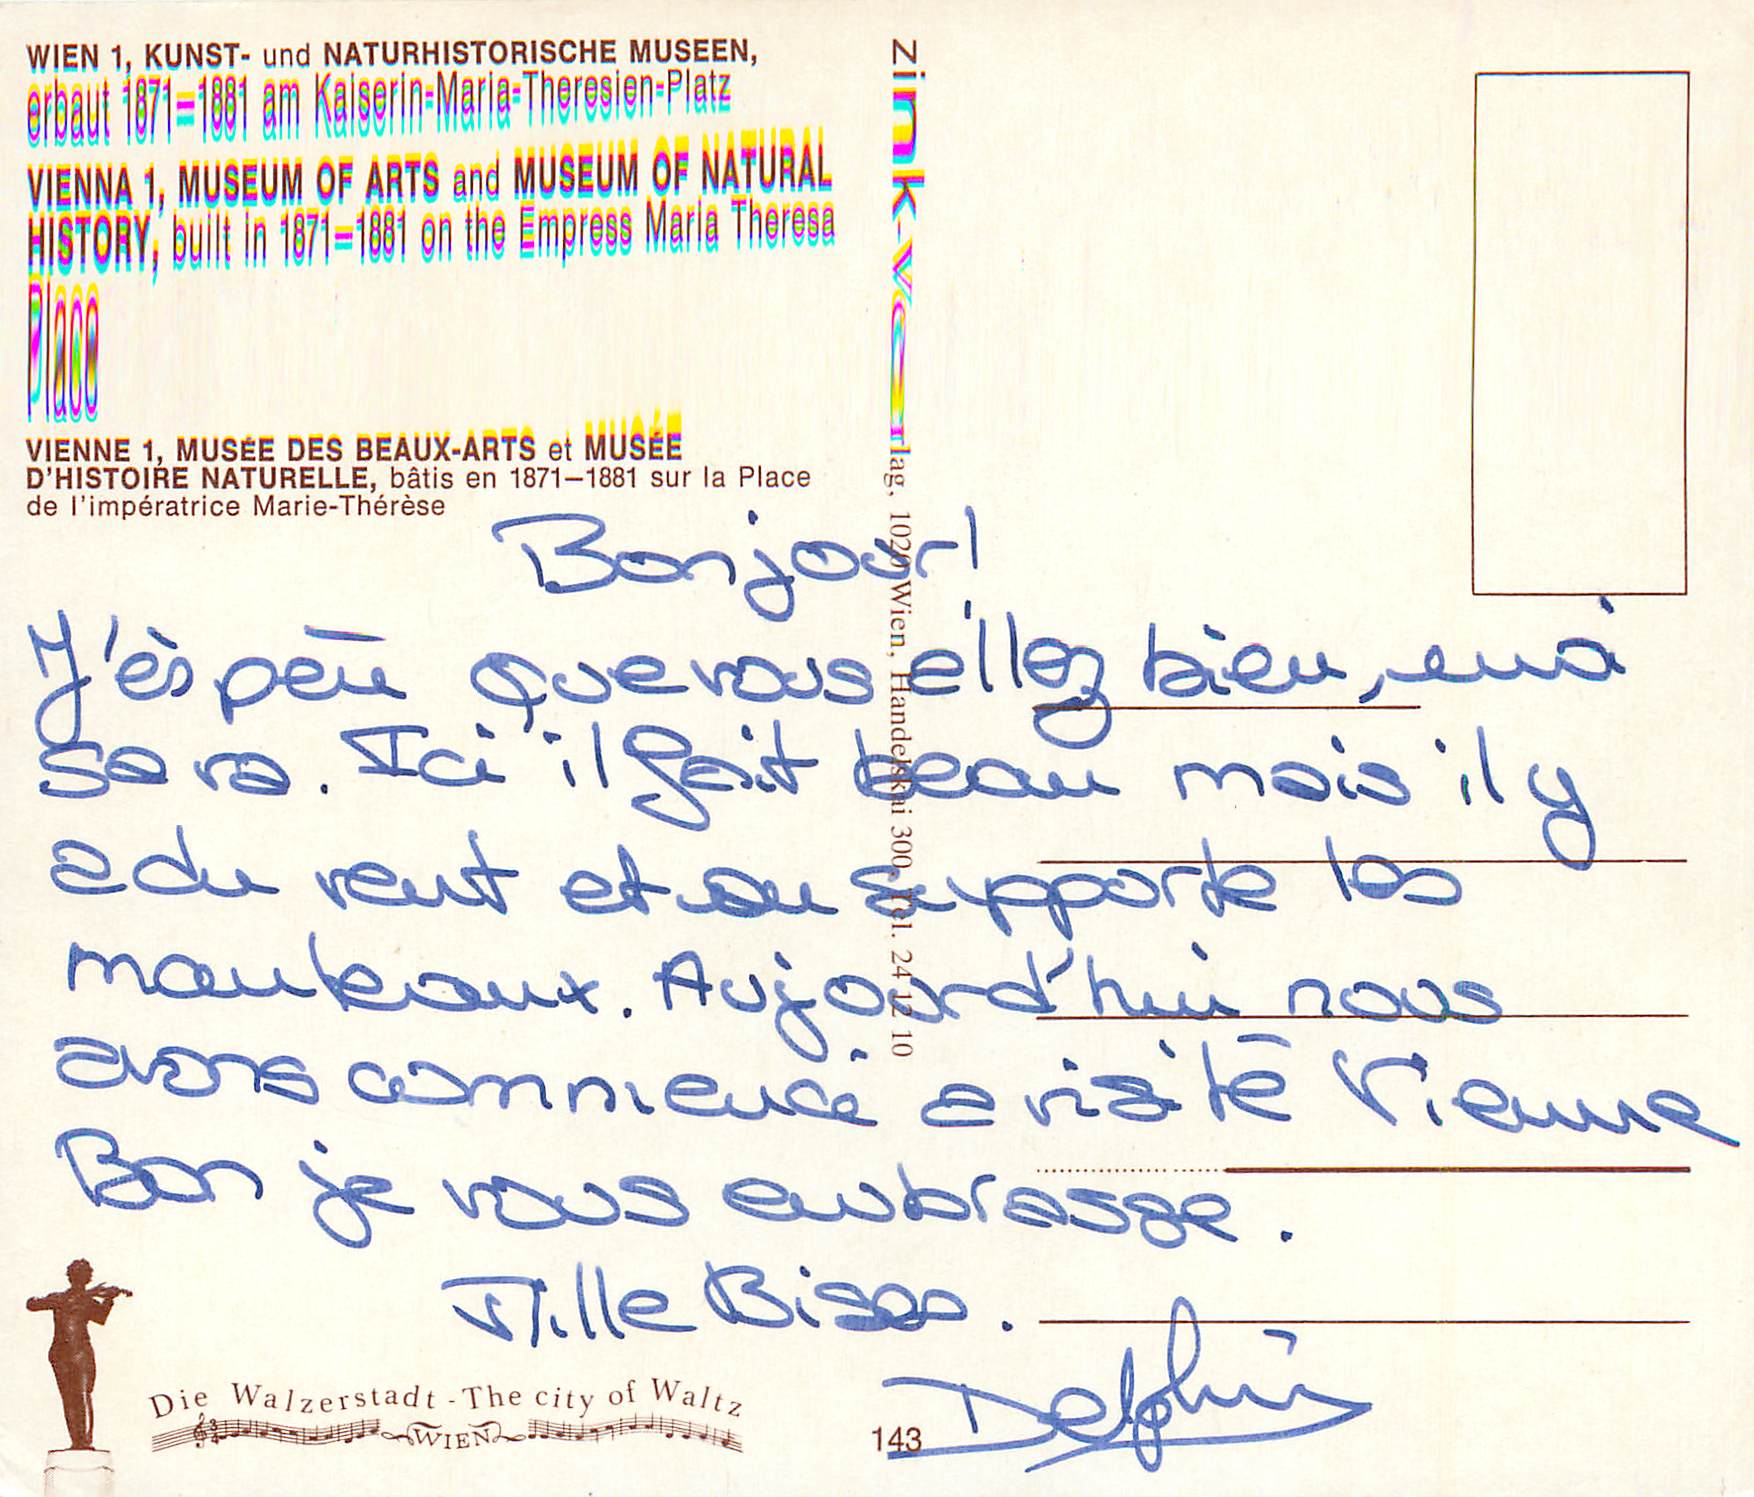 WIEN 1, KUNST- und NATURHISTORISCHE MUSEEN,
erbaut 1871=1881 am Kaiserin-Maria-Theresien-Platz
VIENNA 1, MUSEUM OF ARTS and MUSEUM OF NATURAL
HISTORY, built in 1871=1881 on the Empress Maria Theresa
Place
VIENNE 1, MUSÉE DES BEAUX-ARTS et MUSÉE
D'HISTOIRE NATURELLE, bâtis en 1871–1881 sur la Place
de l'impératrice Marie-Thérèse
zink-verlag, 1020 Wien, Handelskai 300, Tel. 24 12 10
Bonjour!
J'éspére que vous allez bien, moi
sa va. Ici il fait beau mais il y
a du vent et on supporte les
manteaux. Aujourd'hui nous
avons commencé a visité Vienne
Bon je vous embrasse.
Mille Bises.
Delphine
Die Walzerstadt - The city of Waltz
WIEN
143